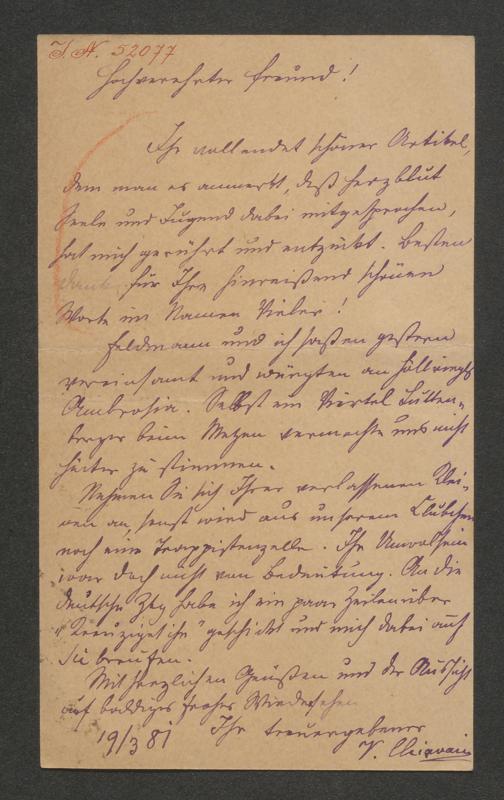 I. N. 52077
Hochverehrter Freund!
Ihr vollendet schöner Artikel,
dem man es anmerkt, daß Herzblut
Seele und Jugend dabei mitgesprochen,
hat mich gerührt und entzückt. Besten
Dank für Ihre hinreißend schönen
Worte im Namen Vieler!
Feldmann und ich saßen gestern
vereinsamt und würgten an
Ambrosia. Selbst ein Viertel Lutten-
berger beim Metzen vermochte uns nicht
heiter zu stimmen.
Nehmen Sie sich Ihrer verlassenen Klei-
nen an, sonst wird aus unserem Clubchen
noch eine Trappistenzelle. Ihr Unwohlsein
war doch nicht von Bedeutung. An die
Deutsche Ztg habe ich ein paar Zeilen über
geschickt und mich dabei auf
Sie berufen.
Mit herzlichen Grüßen und der Aussicht
auf baldiges frohes Wiedersehen
Ihr treuergebener
19/3 81 V. Chiavacci